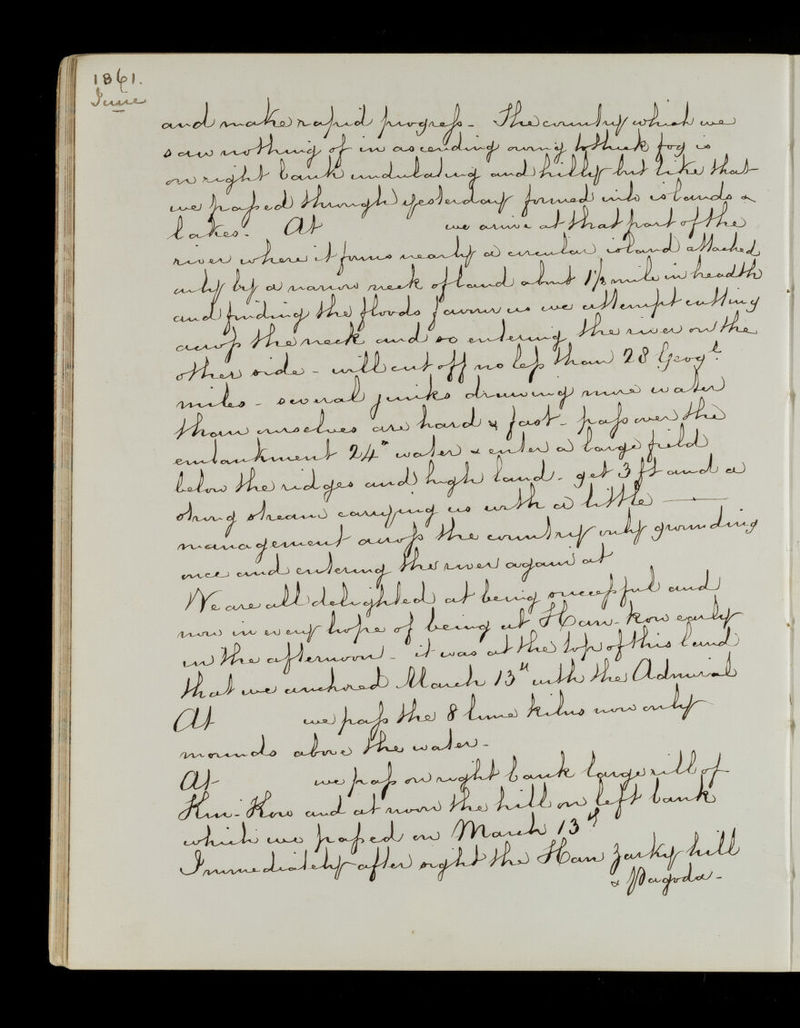 1861.
June
and make rapid progress - The country which we
saw nothing of in ascending owing to thick fog is
on right bank undulating and hilly but like that
we passed through yesterday formed into islands &
lakes. At we arrive at that part of the
river where it forms nearly a circular island attached
only by a narrow neck of land about 1½ mile in breadth
and finding the floods favour us we attempt cutting
across the neck and so entering the river on the
other side - will cut off no less than 28 Geogl.
miles - several junks drawing more water
than ourselves are hard & fast - pass over the
embankment 24" water & enter a large field
below the ridges and high land - get 3 ft and a
strong stream carrying us with a little —
management across the country only grounding
once and entering the river again at
We are all delighted at being successful and
now in every hope of being at Han-kow early
in the afternoon - it was at the top of this land
that we anchored March 13th with the Admiral
At we pass the 8 lime kilns now only
mounds above the water -
At we pass on right bank large vill of
Kin-Kow and at noon the hill on left bank
which we passed on March 13th
Immediately after sight the Han hill
& Pagoda -